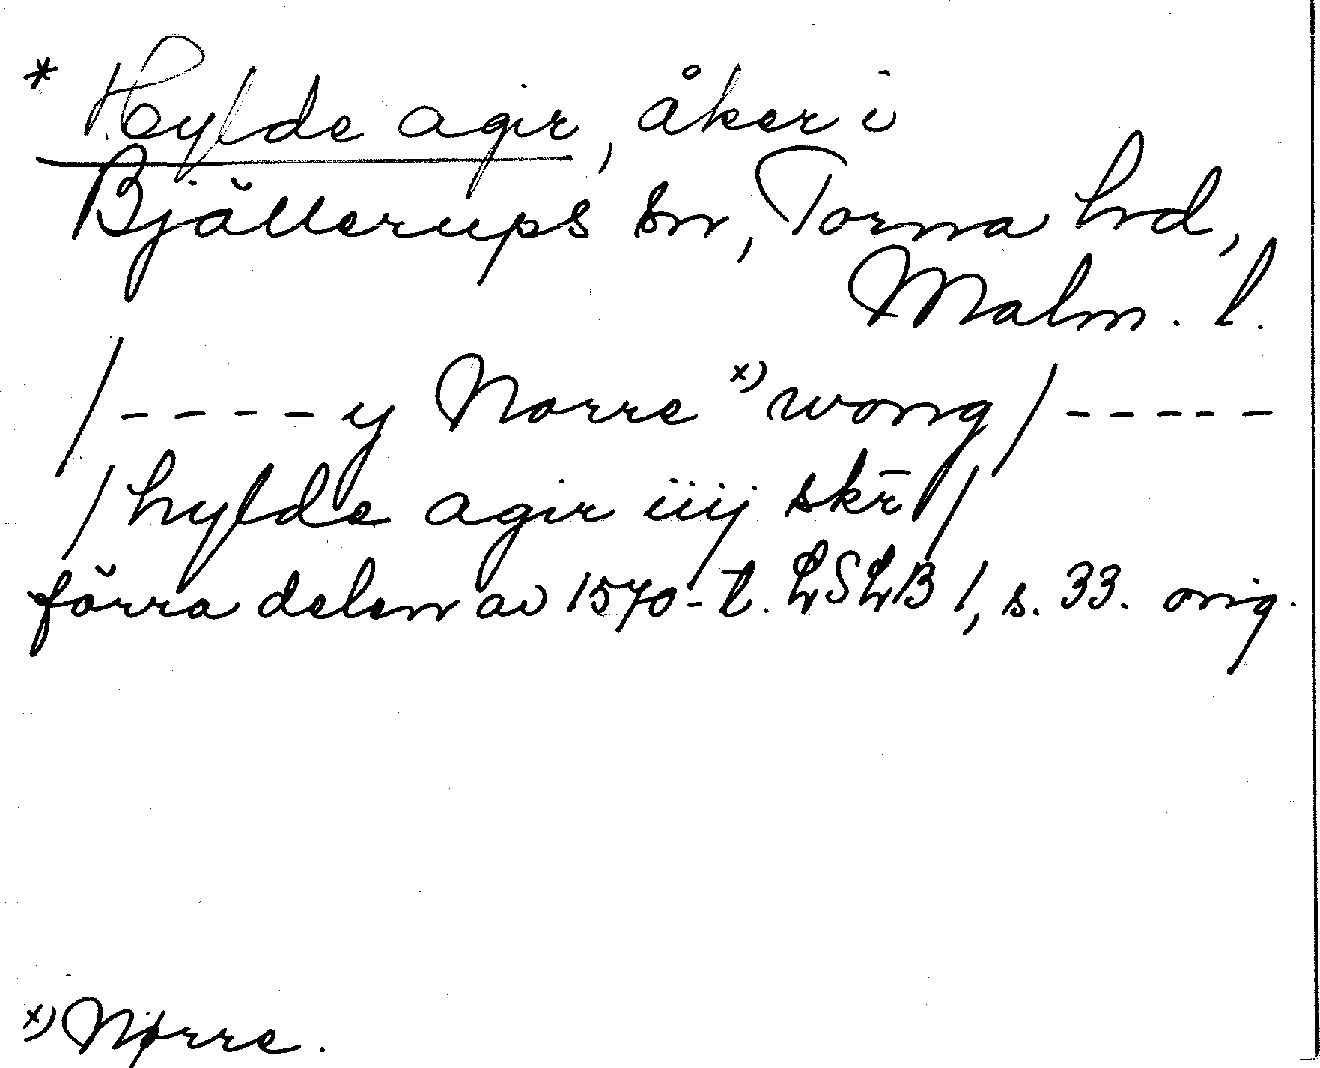 * Hylde agir, åker i
Bjällerups sn, Torna hd,
Malm. l.
/----y Norre x) wong/-----
/hylde agir iiij skr̄/
förra delen av 1570-t. LSLB 1, s. 33. orig.
x) Nørre.